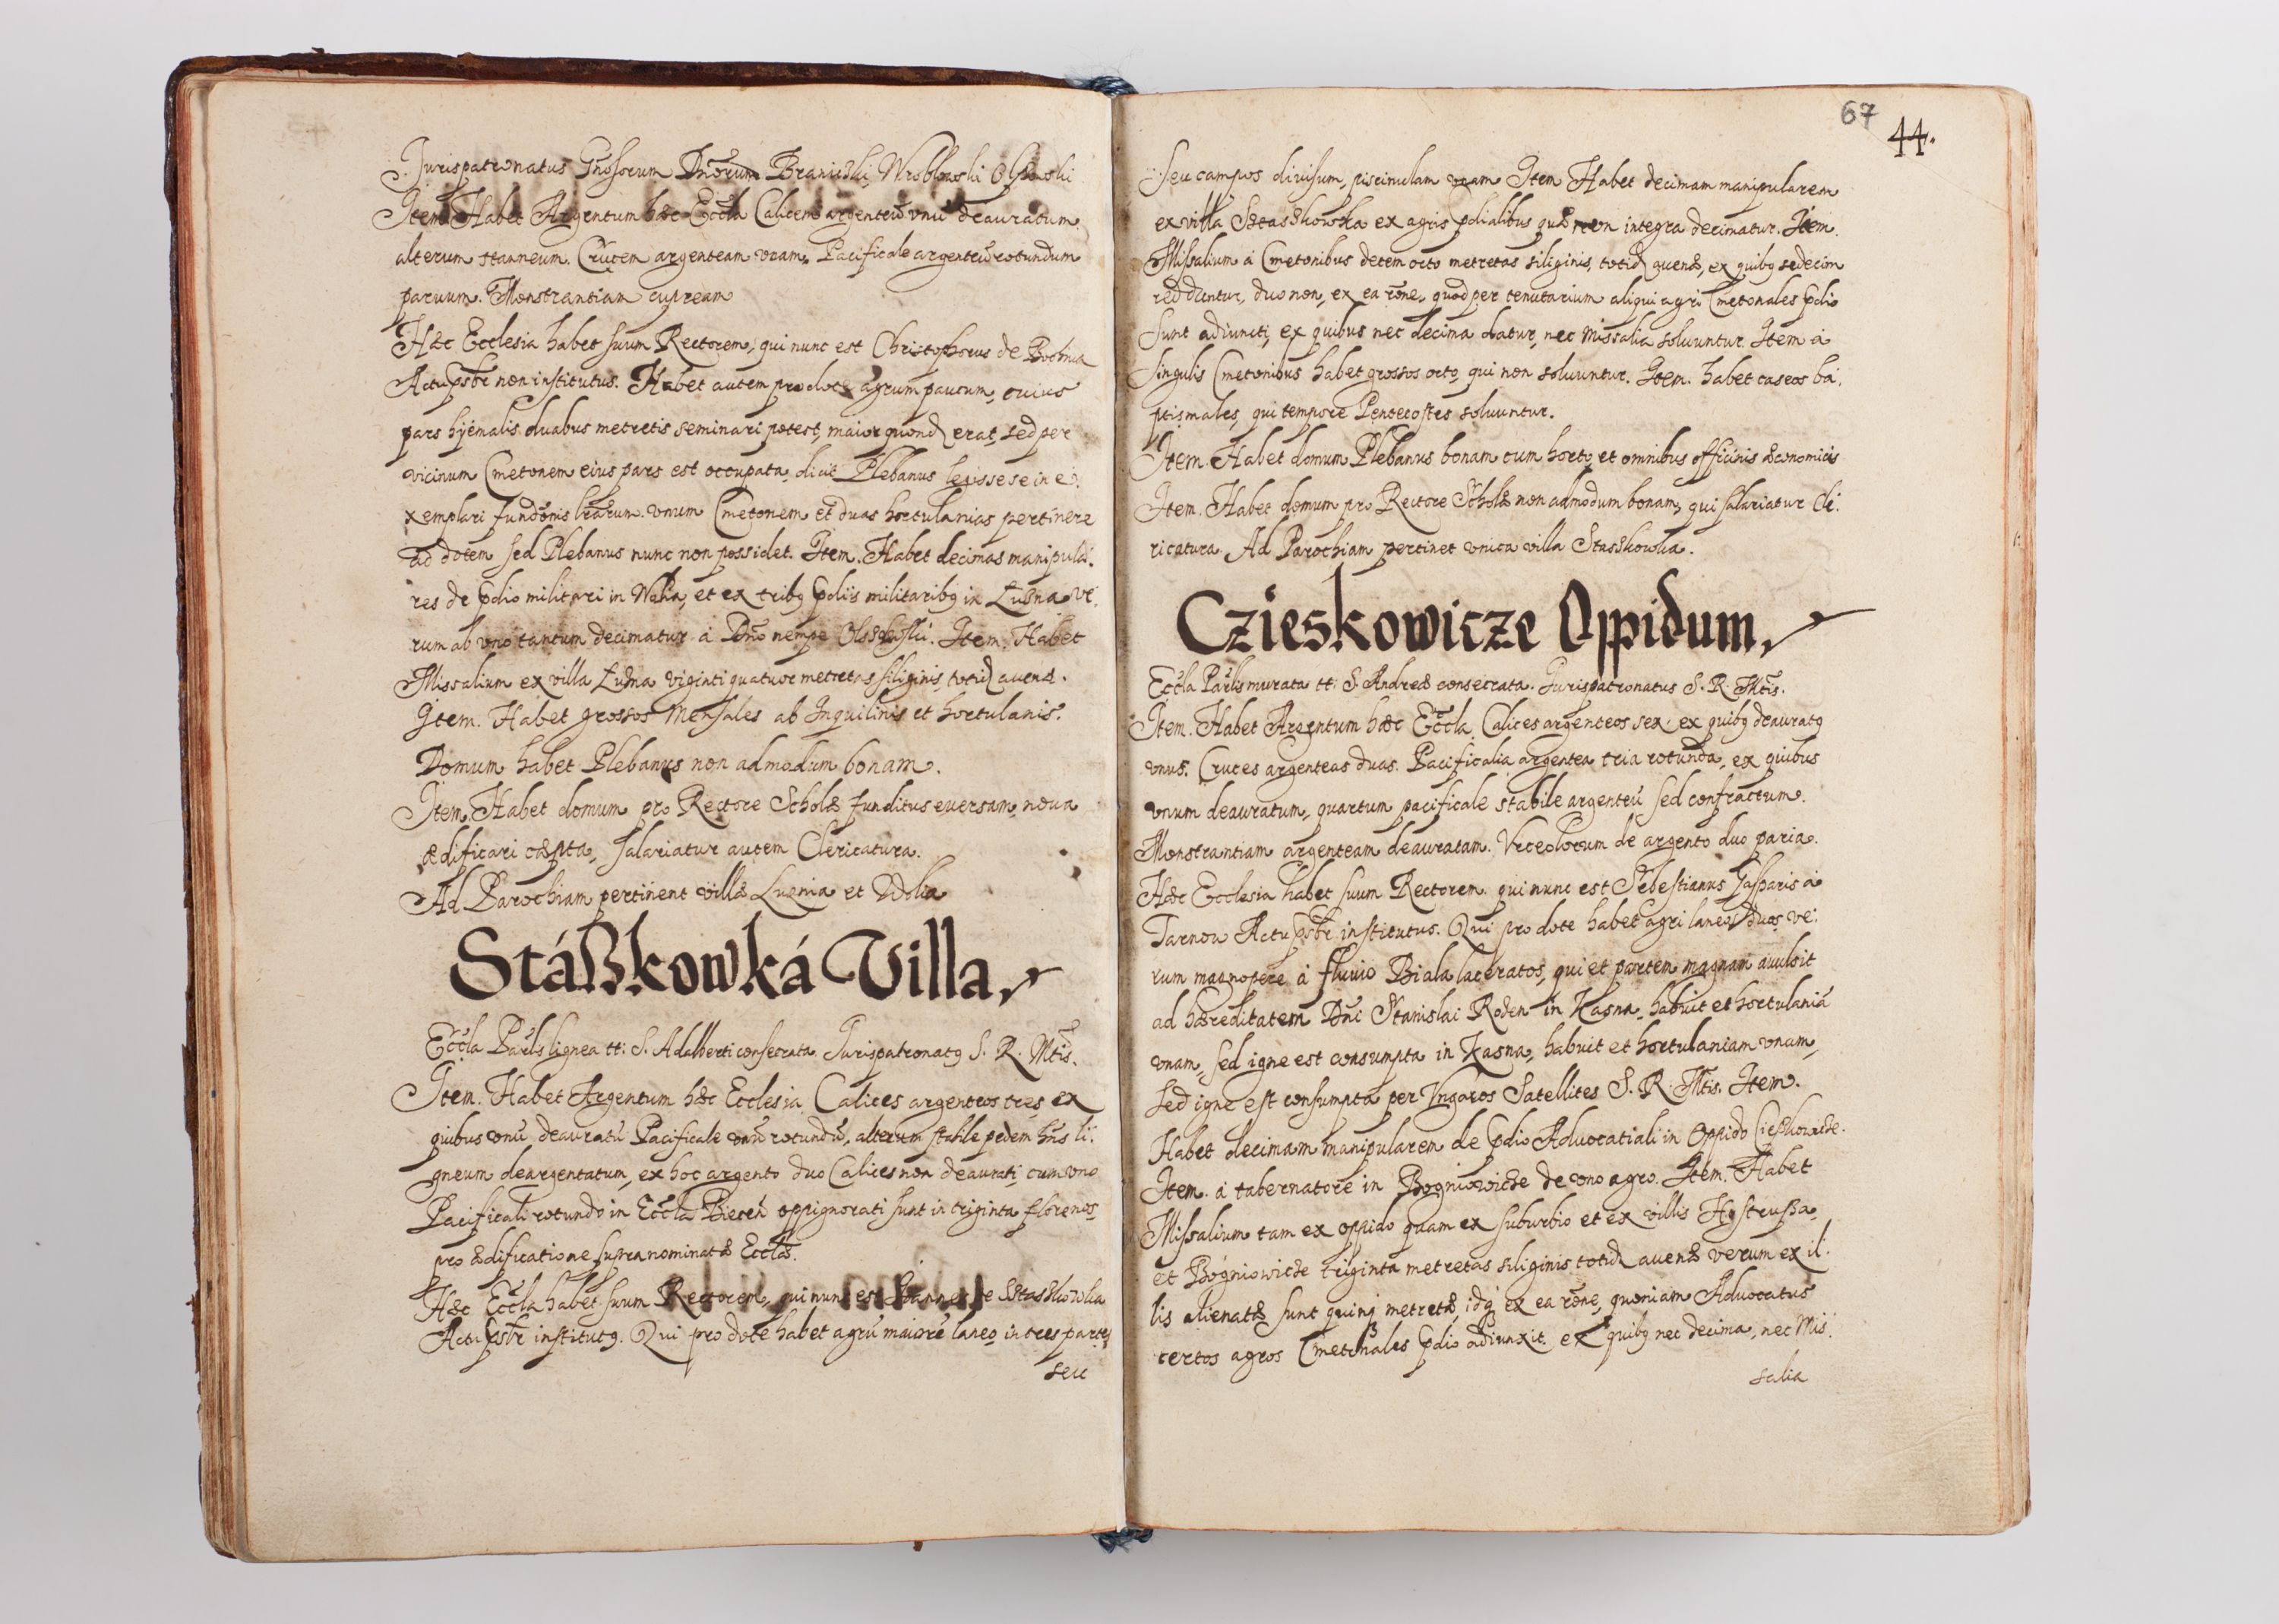 Jurispatronatus Gnosorum Dnorum Braniczki, Wroblowski Olszowski
Item. Habet Argentum hæc Eccla Calicem argenteũ vnũ deauratum
alterum stanneum. Crucem argenteam vnam. Pacificale argenteũ rotundum
paruum. Monstrantiam cupream
Hæc Ecclesia habet suum Rectorem, qui nunc est Christophorus de Bochnia
Actu psbr non institutus. Habet autem pro dote agrum paucum, cuius
pars hyemalis duabus metretis seminari potest, maior quond erat, sed per
vicinum Cmetonem eius pars est occupata, dicit Plebanus legisse se in e:
xemplari fundonis lrarum vnum Cmetonem et duas hortulanias pertinere
ad dotem sed Plebanus nunc non possidet. Item. Habet decimas manipula:
res de pdio militari in Wolia, et ex tribq pdiis militaribq in Luzna ve:
rum ab vno tantum decimatur à Dno nempe Olszowski. Item. Habet
Missalium ex villa Luzna viginti quatuor metretas siliginis, totid auenæ.
Item. Habet grossos Mensales ab Inquilinis et hortulanis.
Domum habet Plebanus non admodum bonam.
Item. Habet domum pro Rectore Scholæ funditus euersam, noua
ædificari cæpta, salariatur autem Clericatura.
Ad Parochiam pertinent villæ Luznia et Wolia
Stáßkowká Villa
Eccla Parlis lignea tt: S. Adalberti consecrata. Jurispatronatq S. R. Mtis.
Item. Habet Argentum hæc Ecclesia Calices argenteos tres ex
quibus vnũ deauratũ Pacificale vnũ rotundũ, alterum stabile pedem hns li:
gneum deargentatum, ex hoc argento duo Calices non deaurati, cum vno
Pacificali rotundo in Eccla Biecen oppignorati sunt in triginta florenos
pro ædificatione supranominatæ Ecclæ.
Hæc Eccla habet suum Rectorem, qui nunc est Joannes de Staszkowka
Actu psbr institutq. Qui pro dote habet agrũ maiorẽ laneo in tres partes
seu
67
44.
seu campos diuisum, piscinulam vnam Item Habet decimam manipularem
ex villa Sztaszkowka ex agris pdialibus quæ non integra decimatur. Item.
Missalium à Cmetonibus decem octo metretas siliginis, totid auenæ, ex quibq sedecim
redduntur, duo non, ex ea rõne, quod per tenutarium aliqui agri Cmetonales pdio
sunt adiuncti, ex quibus nec decima datur, nec Missalia soluuntur. Item à
singulis Cmetonibus habet grossos octo, qui non soluuntur. Item. habet caseos ba:
ptismales, qui tempore Pentecostes soluuntur.
Item. Habet domum Plebanus bonam cum horto, et omnibus officinis æconomicis
Item. Habet domum pro Rectore Scholæ non admodum bonam, qui salariatur Cle:
ricatura. Ad Parochiam pertinet vnica villa Staszkowka.
Czieskowicze Oppidum
Eccla Parlis murata tt: S. Andreæ consecrata. Jurispatronatus S. R. Mtis.
Item. Habet Argentum hæc Eccla Calices argenteos sex, ex quibq deauratq
vnus. Cruces argenteas duas. Pacificalia argentea tria rotunda, ex quibus
vnum deauratum, quartum pacificale stabile argenteũ sed confractum.
Monstrantiam argenteam deauratam. Vrceolorum de argento duo paria.
Hæc Ecclesia habet suum Rectorem qui nunc est Sebestianus Gasparis à
Tarnow Actu psbr institutus. Qui pro dote habet agri laneos duos, ve:
rum magnopere à fluuio Biala laceratos, qui et partem magnam auulsit
ad hæreditatem Dni Stanislai Roden in Kasna, habuit et hortulaniã
vnam, sed igne est consumpta in Kasna, habuit et hortulaniam vnam,
sed igne est consumpta per Vngaros Satellites S. R. Mtis. Item.
Habet decimam manipularem de pdio Aduocatiali in Oppido Cieszkowicze.
Item. à tabernatore in Bogniowicze de vno agro. Item. Habet
Missalium tam ex oppido quam ex suburbio et ex villis Hostrusza
et Bogniowicze triginta metretas siliginis totid auenæ verum ex il:
lis alienatæ sunt quinq metretæ, idq ex ea rõne, quoniam Aduocatus
certos agros Cmetonales pdio adiunxit ex quibq nec decima, nec Mis:
salia